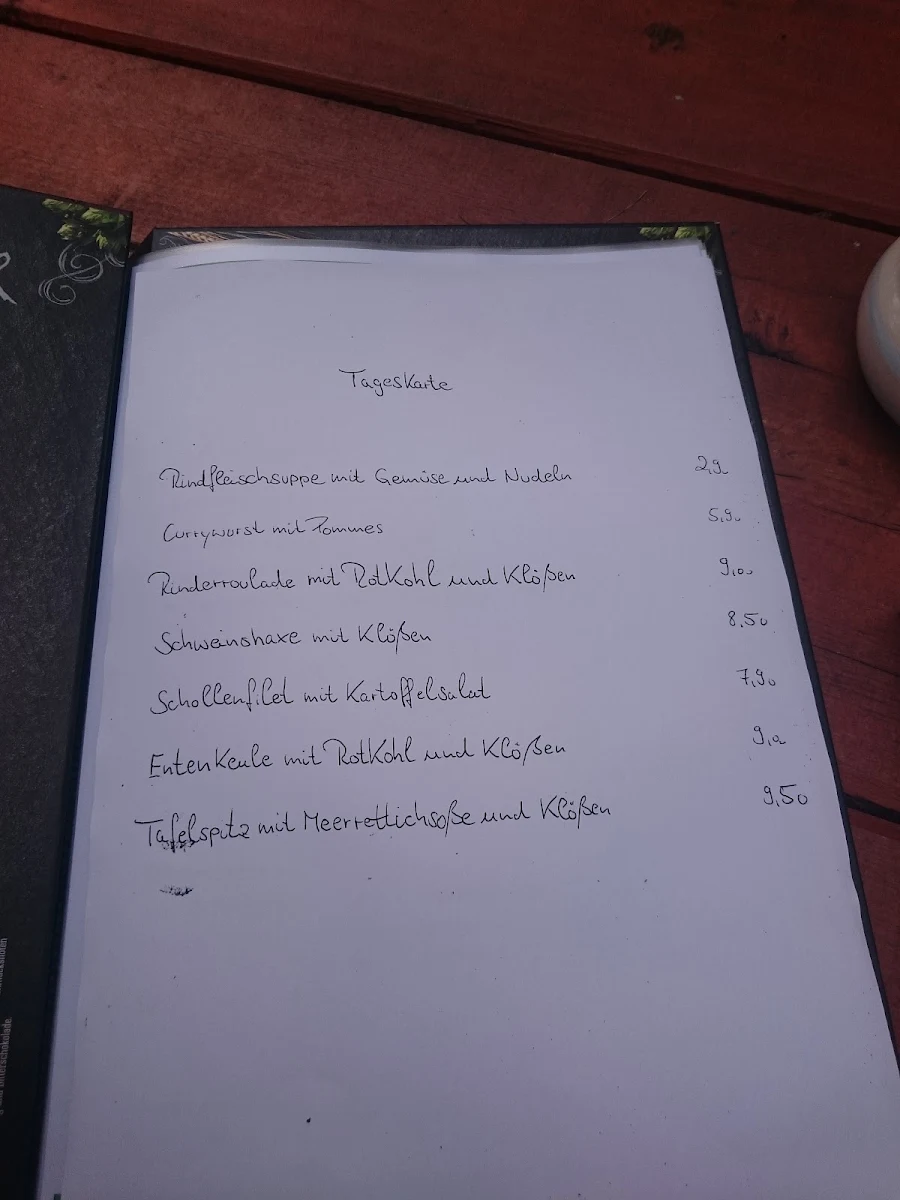 Tageskarte
Rindfleischsuppe mit Gemüse und Nudeln 2,9
Currywurst mit Pommes 5,90
Rinderroulade mit Rotkohl und Klößen 9,00
Schweinshaxe mit Klößen 8,50
Schollenfilet mit Kartoffelsalat 7,90
Entenkeule mit Rotkohl und Klößen
Tafelspitz mit Meerrettichsoße und Klößen 9,50